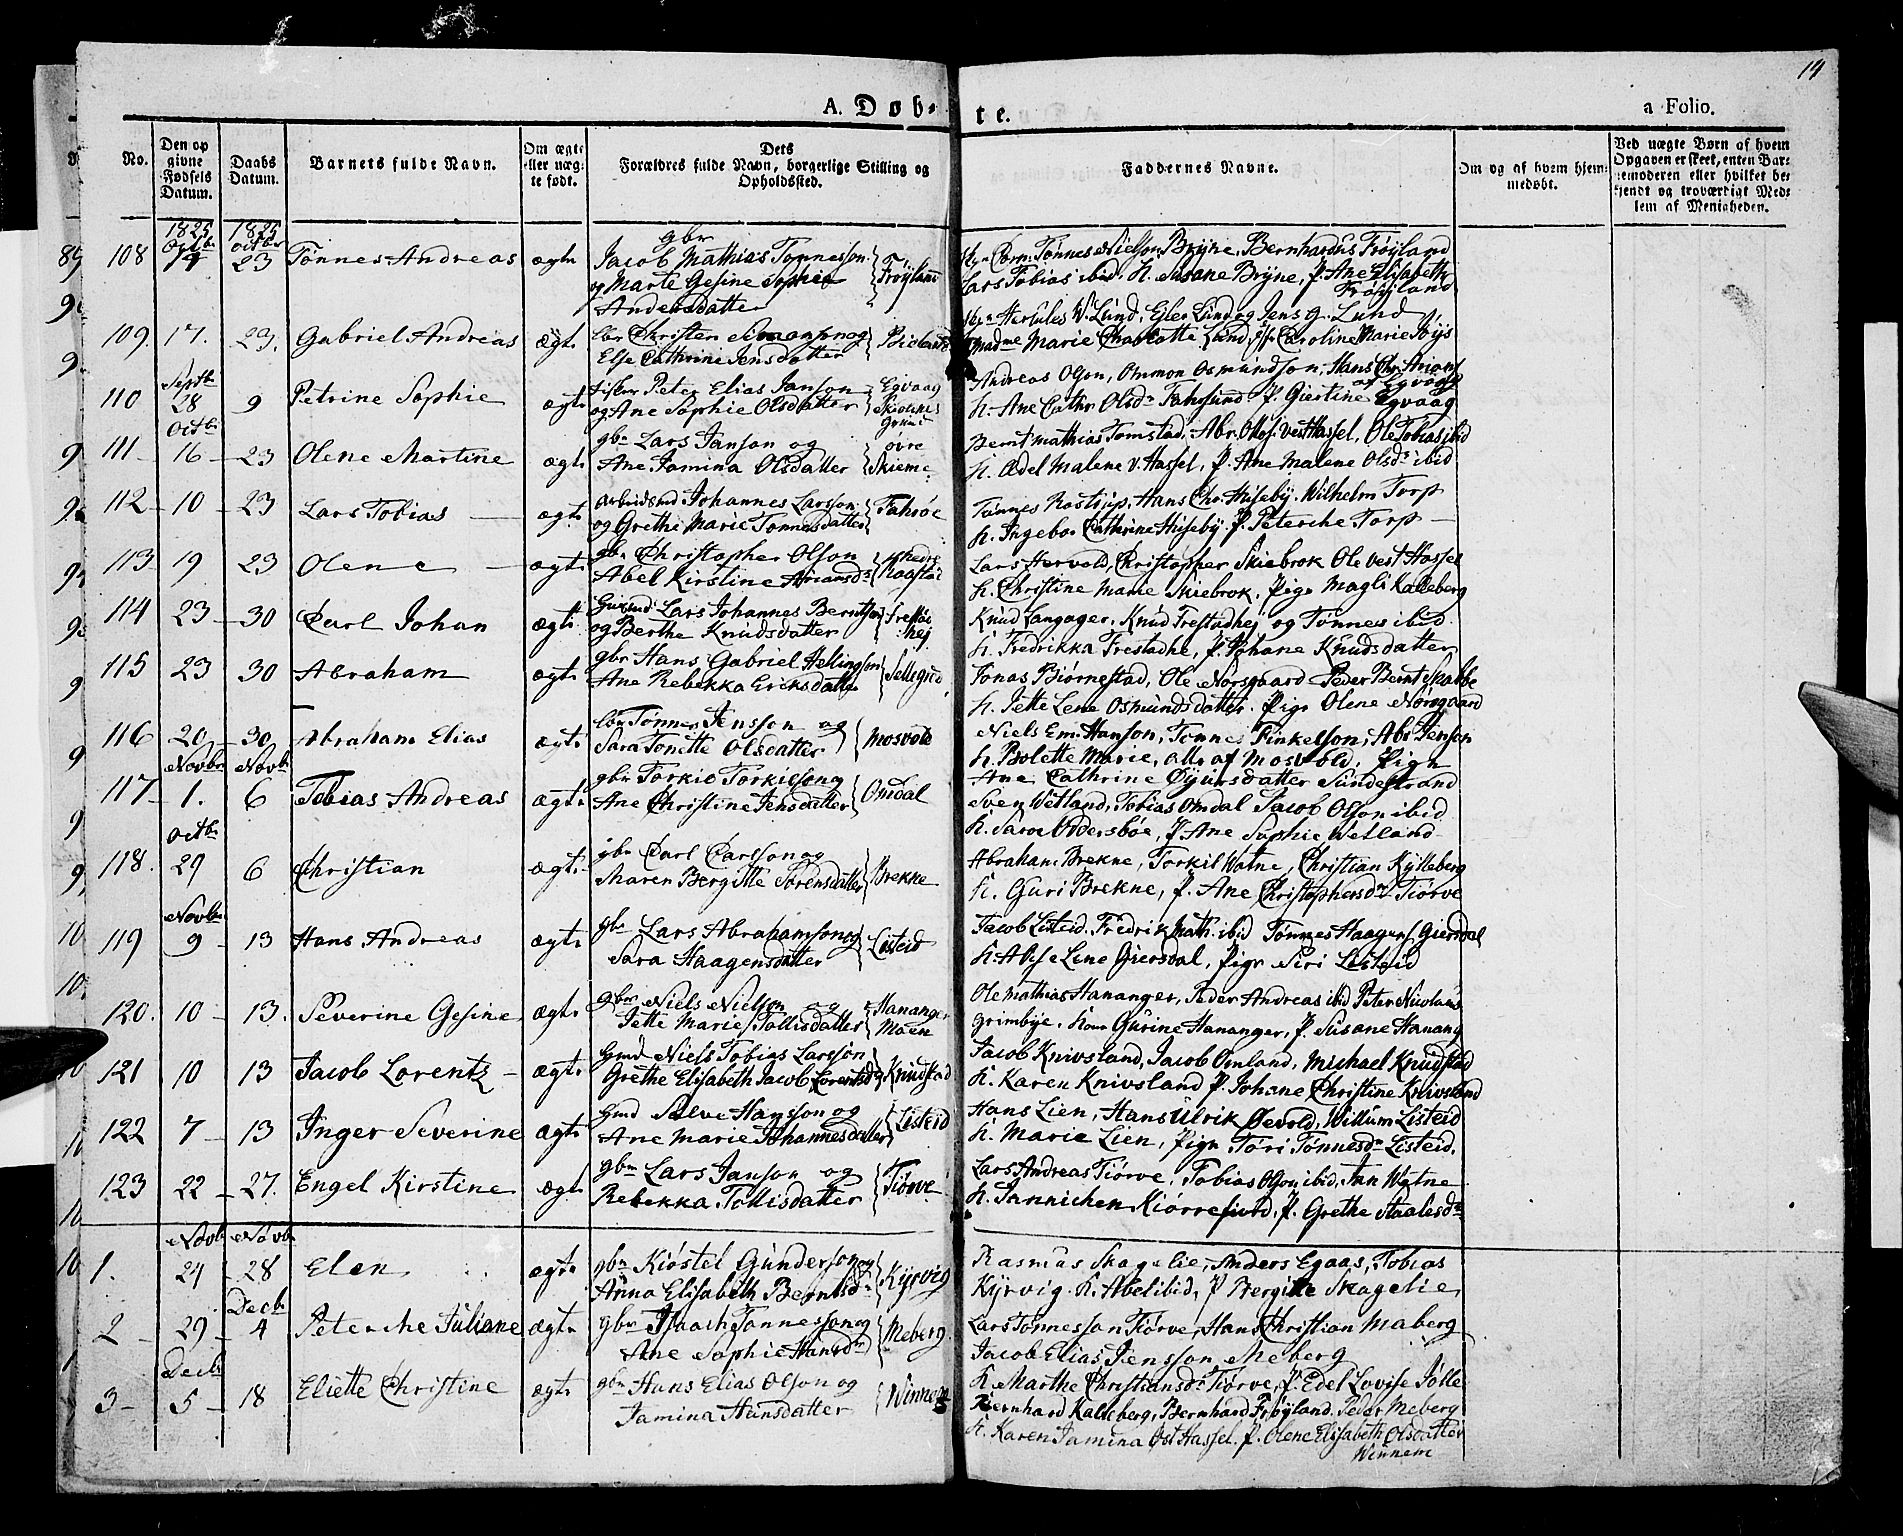 14
A. Døb-te.
a Folio.
No.
Den opgivne Fødsels Datum.
Daabs Datum.
Barnets fulde Navn.
Om ægte eller uægte født.
Dets Forældres fulde Navn, borgerlige Stilling og Opholdssted.
Faddernes Navne.
Om og af hvem hjemmedøbt.
Ved uægte Børn af hvem Opgaven er skeet, enten Barnemoderen eller hvilket bekjendt og troværdigt Medlem af Menigheden.
1825 1825
Octbr Octbr
108 23 Tønnes Andreas ægte gbr Jacob Mathias Tønnesson
og Marte Gesine Sophie Andersdatter Frøyland
Tønnes Nielson Bryne, Bernhardus Frøyland
Lars Tobias ibid, K. Susane Bryne, P. Ane Elisabeth Frøyland
109 17. 23. Gabriel Andreas ægte Christen Simonson og
Else Cathrine Jensdatter
Hercules W. Lund, Eiler Lund og Jens G. Lund
Madme Marie Charlotte Lund, Caroline Marie
Septbr
110 28 9 Petrine Sophie ægte Fisker Peter Elias Janson
og Ane Sophie Olsdatter Egvaag Grund
Andreas Olson, Ommon Osmundson, Hans Chr. af Egvaag
K. Ane Cathr Olsdr Fahrsund P. Giertine Egvaag
Octbr
111 16 23 Olene Martine ægte gbr Lars Janson og
Ane Jamina Olsdatter øvre Skieme
Bernt Mathias Tomstad, Abr. Vest Hassel, Ole Tobias ibid
K. Ædel Malene v. Hassel, P. Ane Malene Olsdr ibid
112 10 23 Lars Tobias ægte Arbeidsmd Johannes Larsson
og Grethe Marie Tønnesdatter Fahrøe
Tønnes Rostrup, Hans Chr. Huseby, Wilhelm Torp
K. Ingebor Cathrine Huseby. P. Peterche Torp
113 19 23 Olene ægte gbr Christopher Olson
Abel Kirstine Ariansdr
Lars Hervold, Christopher Skiebrok Ole Vest Hassel
K. Christine Marie Skiebrok, Pige Magli Kalleberg
114 23 30 Carl Johan ægte Lars Johannes Berntson
og Berthe Knudsdatter
Knud Langager, Knud Trestadhej og Tønnes ibid.
K. Fredrikka Trestadhe, P. Johane Knudsdatter
115 23 30 Abraham ægte gbr Hans Gabriel Hellingson
Ane Rebekka Eriksdatter Sellegrod
Jonas Biørnestad, Ole Norsgaard Peder Bernt
K. Jette Lene Osmundsdatter. Pige Olene Norsgaard
116 20 30 Abraham Elias ægte Tønnes Jensson og
Sara Tonette Olsdatter Mosvold
Niels Em. Hanson, Tønnes Finkelson, Abr Jenson
K. Bolette Marie, alle af Mosvold, Pige
Ane Cathrine Sundestrand
Novbr Novbr
117 1. 6 Tobias Andreas ægte gbr Torkil Torkilson og
Ane Christine Jensdatter Omdal
Sven Wetland, Tobias Omdal Jacob Olson ibid
K. Sara Oddersbøe, P. Ane Sophie Wetland
Octbr
118. 29 6 Christian ægte gbr Carl Carlson og
Maren Bergitte Sørensdatter Brekke
Abraham Brekne, Torkil Watne, Christian Kylleberg
K. Guri Brekne, P. Ane Christophersdr Tiørve
Novbr
119 9 13 Hans Andreas ægte gbr Lars Abrahamson og
Sara Haagensdatter Listeid
Jacob Listeid, Fredrik Math. ibid Tønnes Haagens. Giersdal
K. Lene Giersdal, Pige Siri Listeid
120. 10 13. Severine Gesine ægte gbr Niels Nielsen og
Jette Marie Tollisdatter Hananger Moen
Ole Mathias Hananger, Peder Andreas ibid Peter Nicolaus
Grimbye, Kone Gurine Hananger, P. Susane Hanang
121 10 13 Jacob Lorentz ægte Gmd Niels Tobias Larsson
Grethe Elisabeth Jacob Lorentsd Knudstad
Jacob Knivsland, Jacob Omland, Michael Knudstad
K. Karen Knivsland P. Johane Christine Knivsland
122 7 13 Inger Severine ægte Gmd Salve Hansson og
Ane Marie Johannesdatter Listeid
Hans Lien, Hans Ulrik Øevold, Willum Listeid
K. Marie Lien, Pige Tori Tønnesdr Listeid.
123 22 27. Engel Kirstine ægte gbr Lars Janson og
Rebekka Tollisdatter Tiørve
Lars Andreas Tiørve, Tobias Olson ibid, Jan Watne
K. Tannichen Kiørrefiord, P. Grethe Staalesdr
Novbr Novbr
1. 24 28 Elen ægte gbr Kiøstel Gunderson og
Anna Elisabeth Berntsdr Kyrvig
Rasmus Skagelie, Anders Egaas, Tobias
Kyrvig K. Abel ibid, P. Bergitte Skagelie
Decbr
2 29 4 Peterche Juliane ægte gbr Isaach Tønnesson og
Ane Sophie Hansdr Meberg.
Lars Tønnesson Tiørve, Hans Christian Maberg
Jacob Elias Jensson Meberg
K. Marthe Christiansdr Tiørve, P. Edel Lovise
Decbr
3 5 18 Eliette Christine ægte gbr Hans Elias Olson og
Jamina Hansdatter Winnem
Bernhard Kalleberg, Bernhard Frøyland. Peder Meberg
K. Karen Jamina Øst Hassel. P. Olene Elisabeth Olsdatter
Winnem